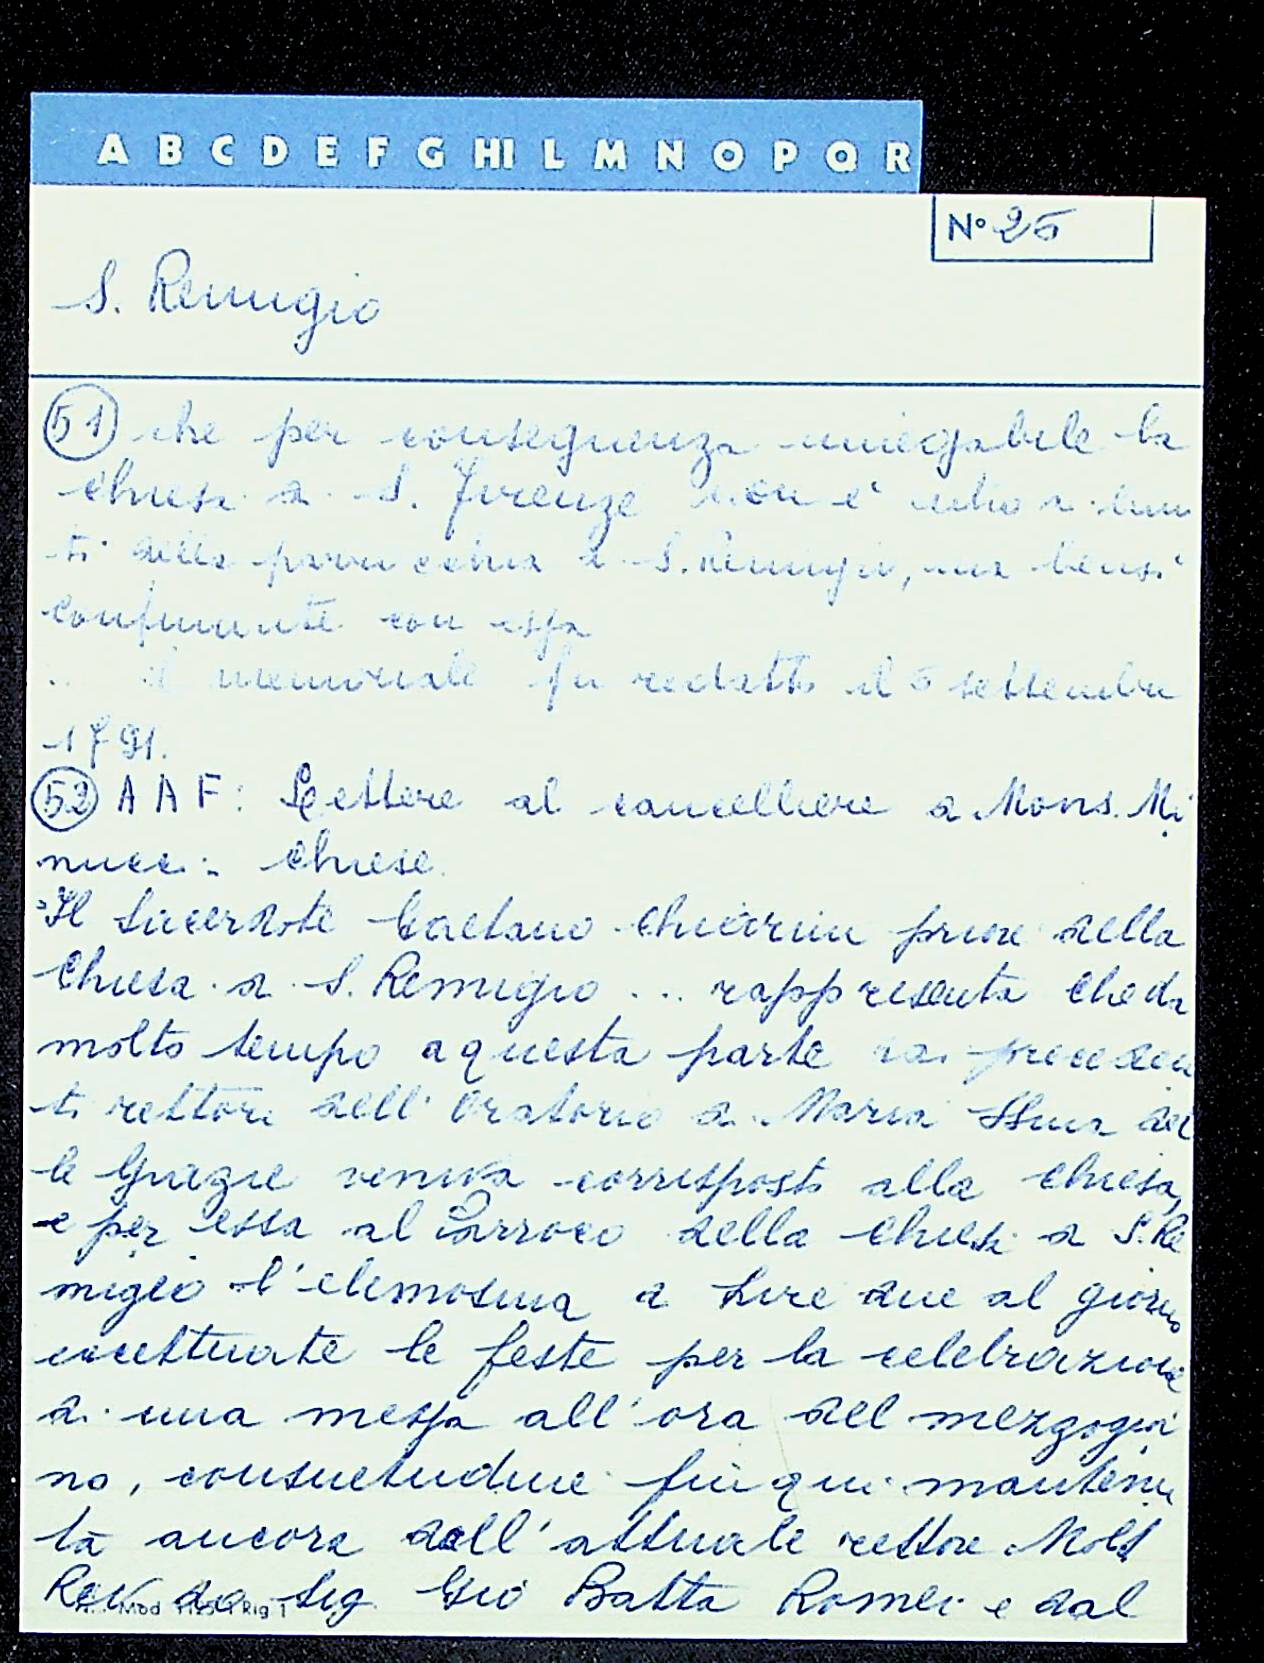 A B C D E F G HI L M N O P Q R
N° 25
S. Remigio
51 che per conseguenza innegabile la
chiesa di S. Firenze non è entro i limi
ti della parrocchia di S. Remigio, ma bensì
confinante con essa
.. il memoriale fu redatto il 5 settembre
1791.
52 A A F: Lettere al cancelliere di Mons. Mi
nucci: chiese.
"Il sacerdote Gaetano Chiarini priore della
Chiesa di S. Remigio ... rappresenta che da
molto tempo a questa parte dai preceden
ti rettori dell'Oratorio di Maria SSma del
le Grazie veniva corrisposto alla chiesa,
e per essa al Parroco della chiesa di S. Re
migio l'elemosina di Lire due al giorno
eccettuate le feste per la celebrazione
di una messa all'ora del mezzogior
no, consuetudine fin qui mantenu
ta ancora dall'attuale rettore Molt
Rev do Sig. Gio Batta Romei e dal
Mod Rig 1